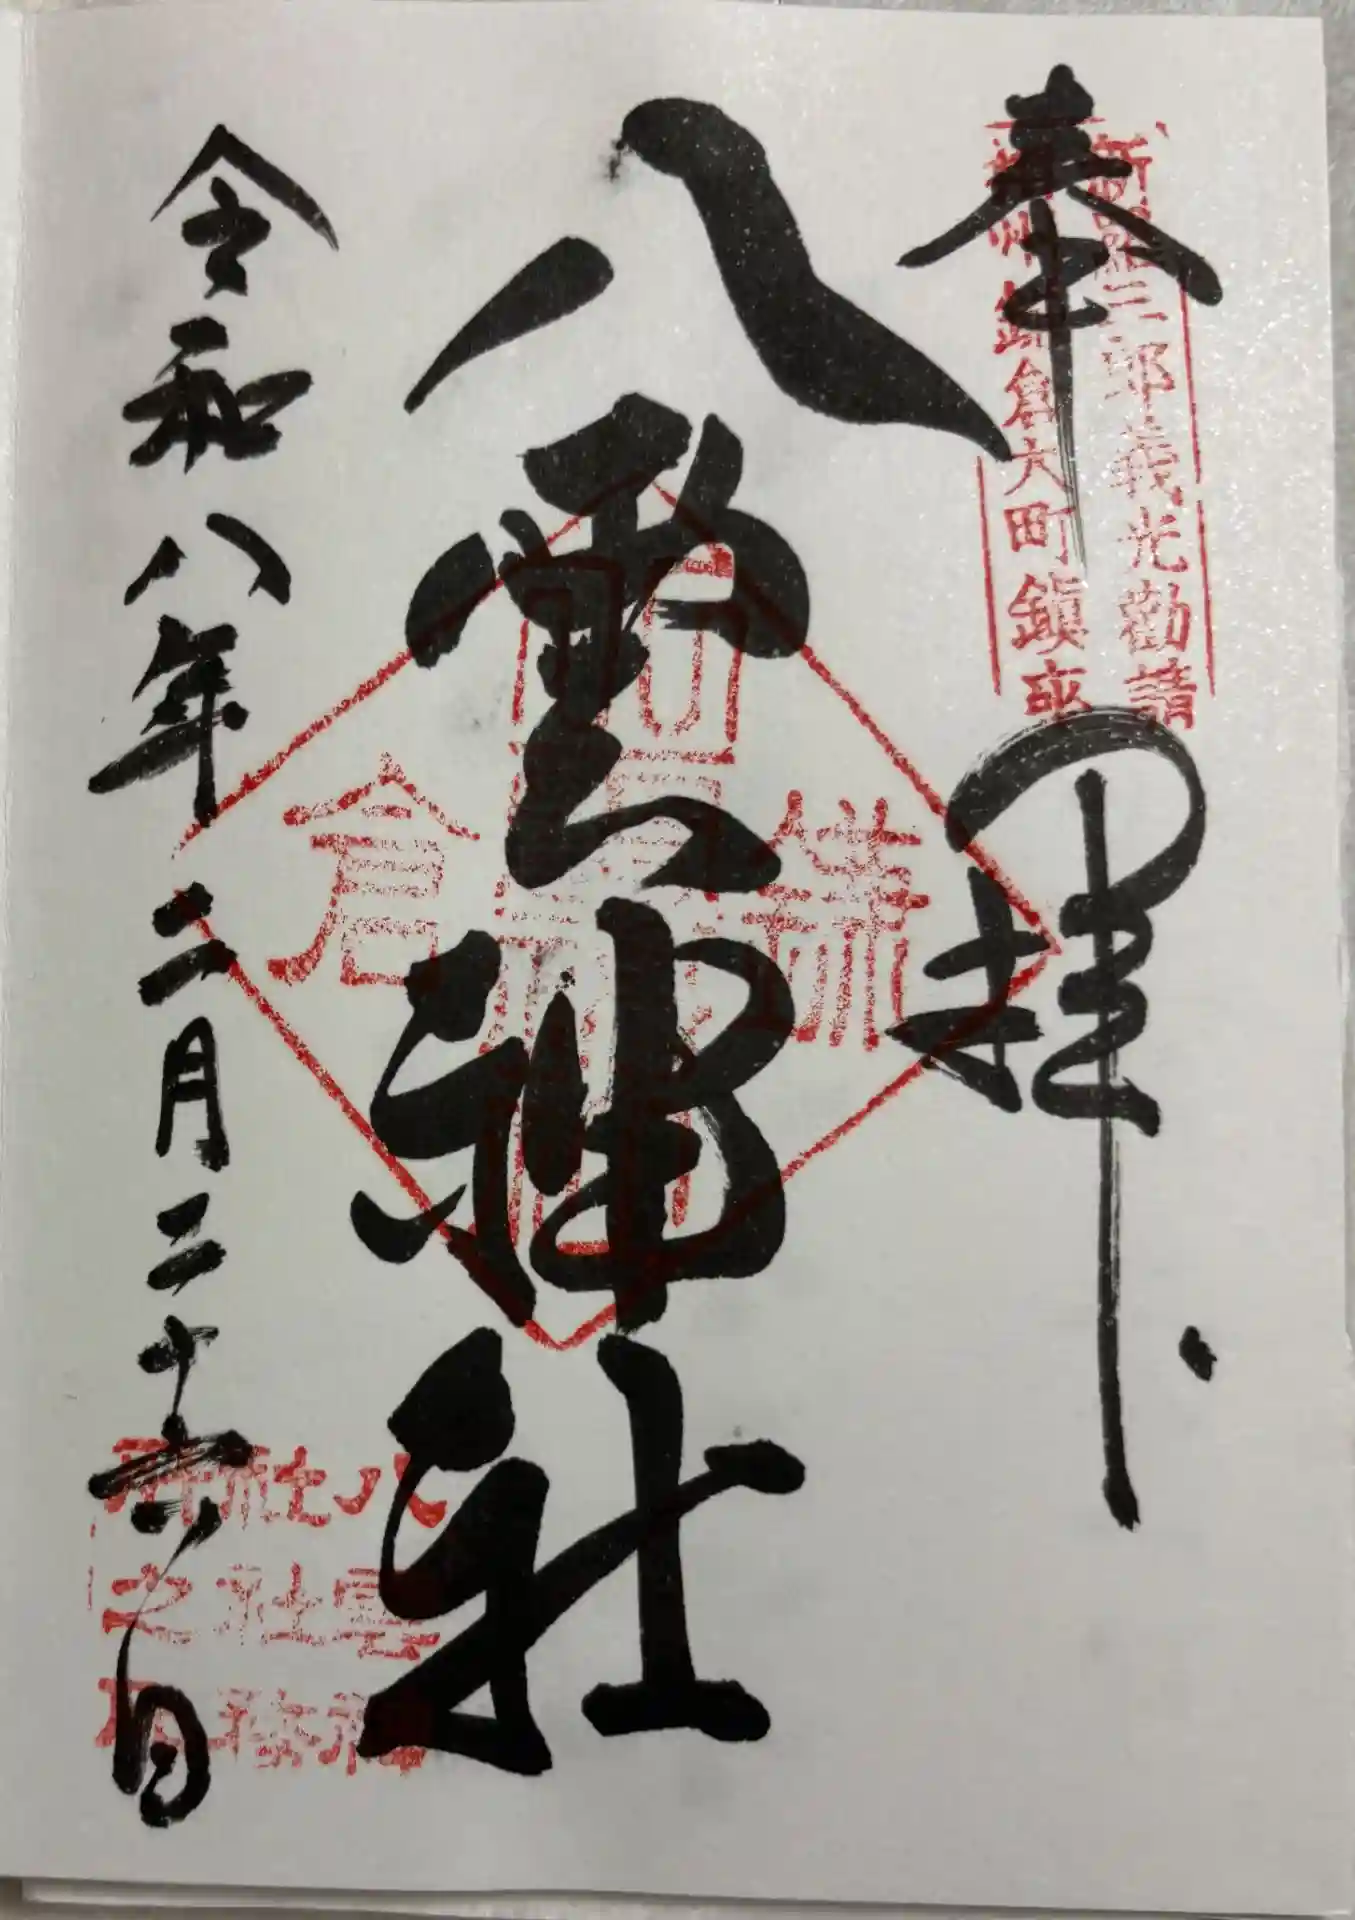 奉拝
新羅三郎義光勧請
相州鎌倉大町鎮座
八雲神社
鎌倉
八雲神
社社務
所之印
令和八年二月二十六日